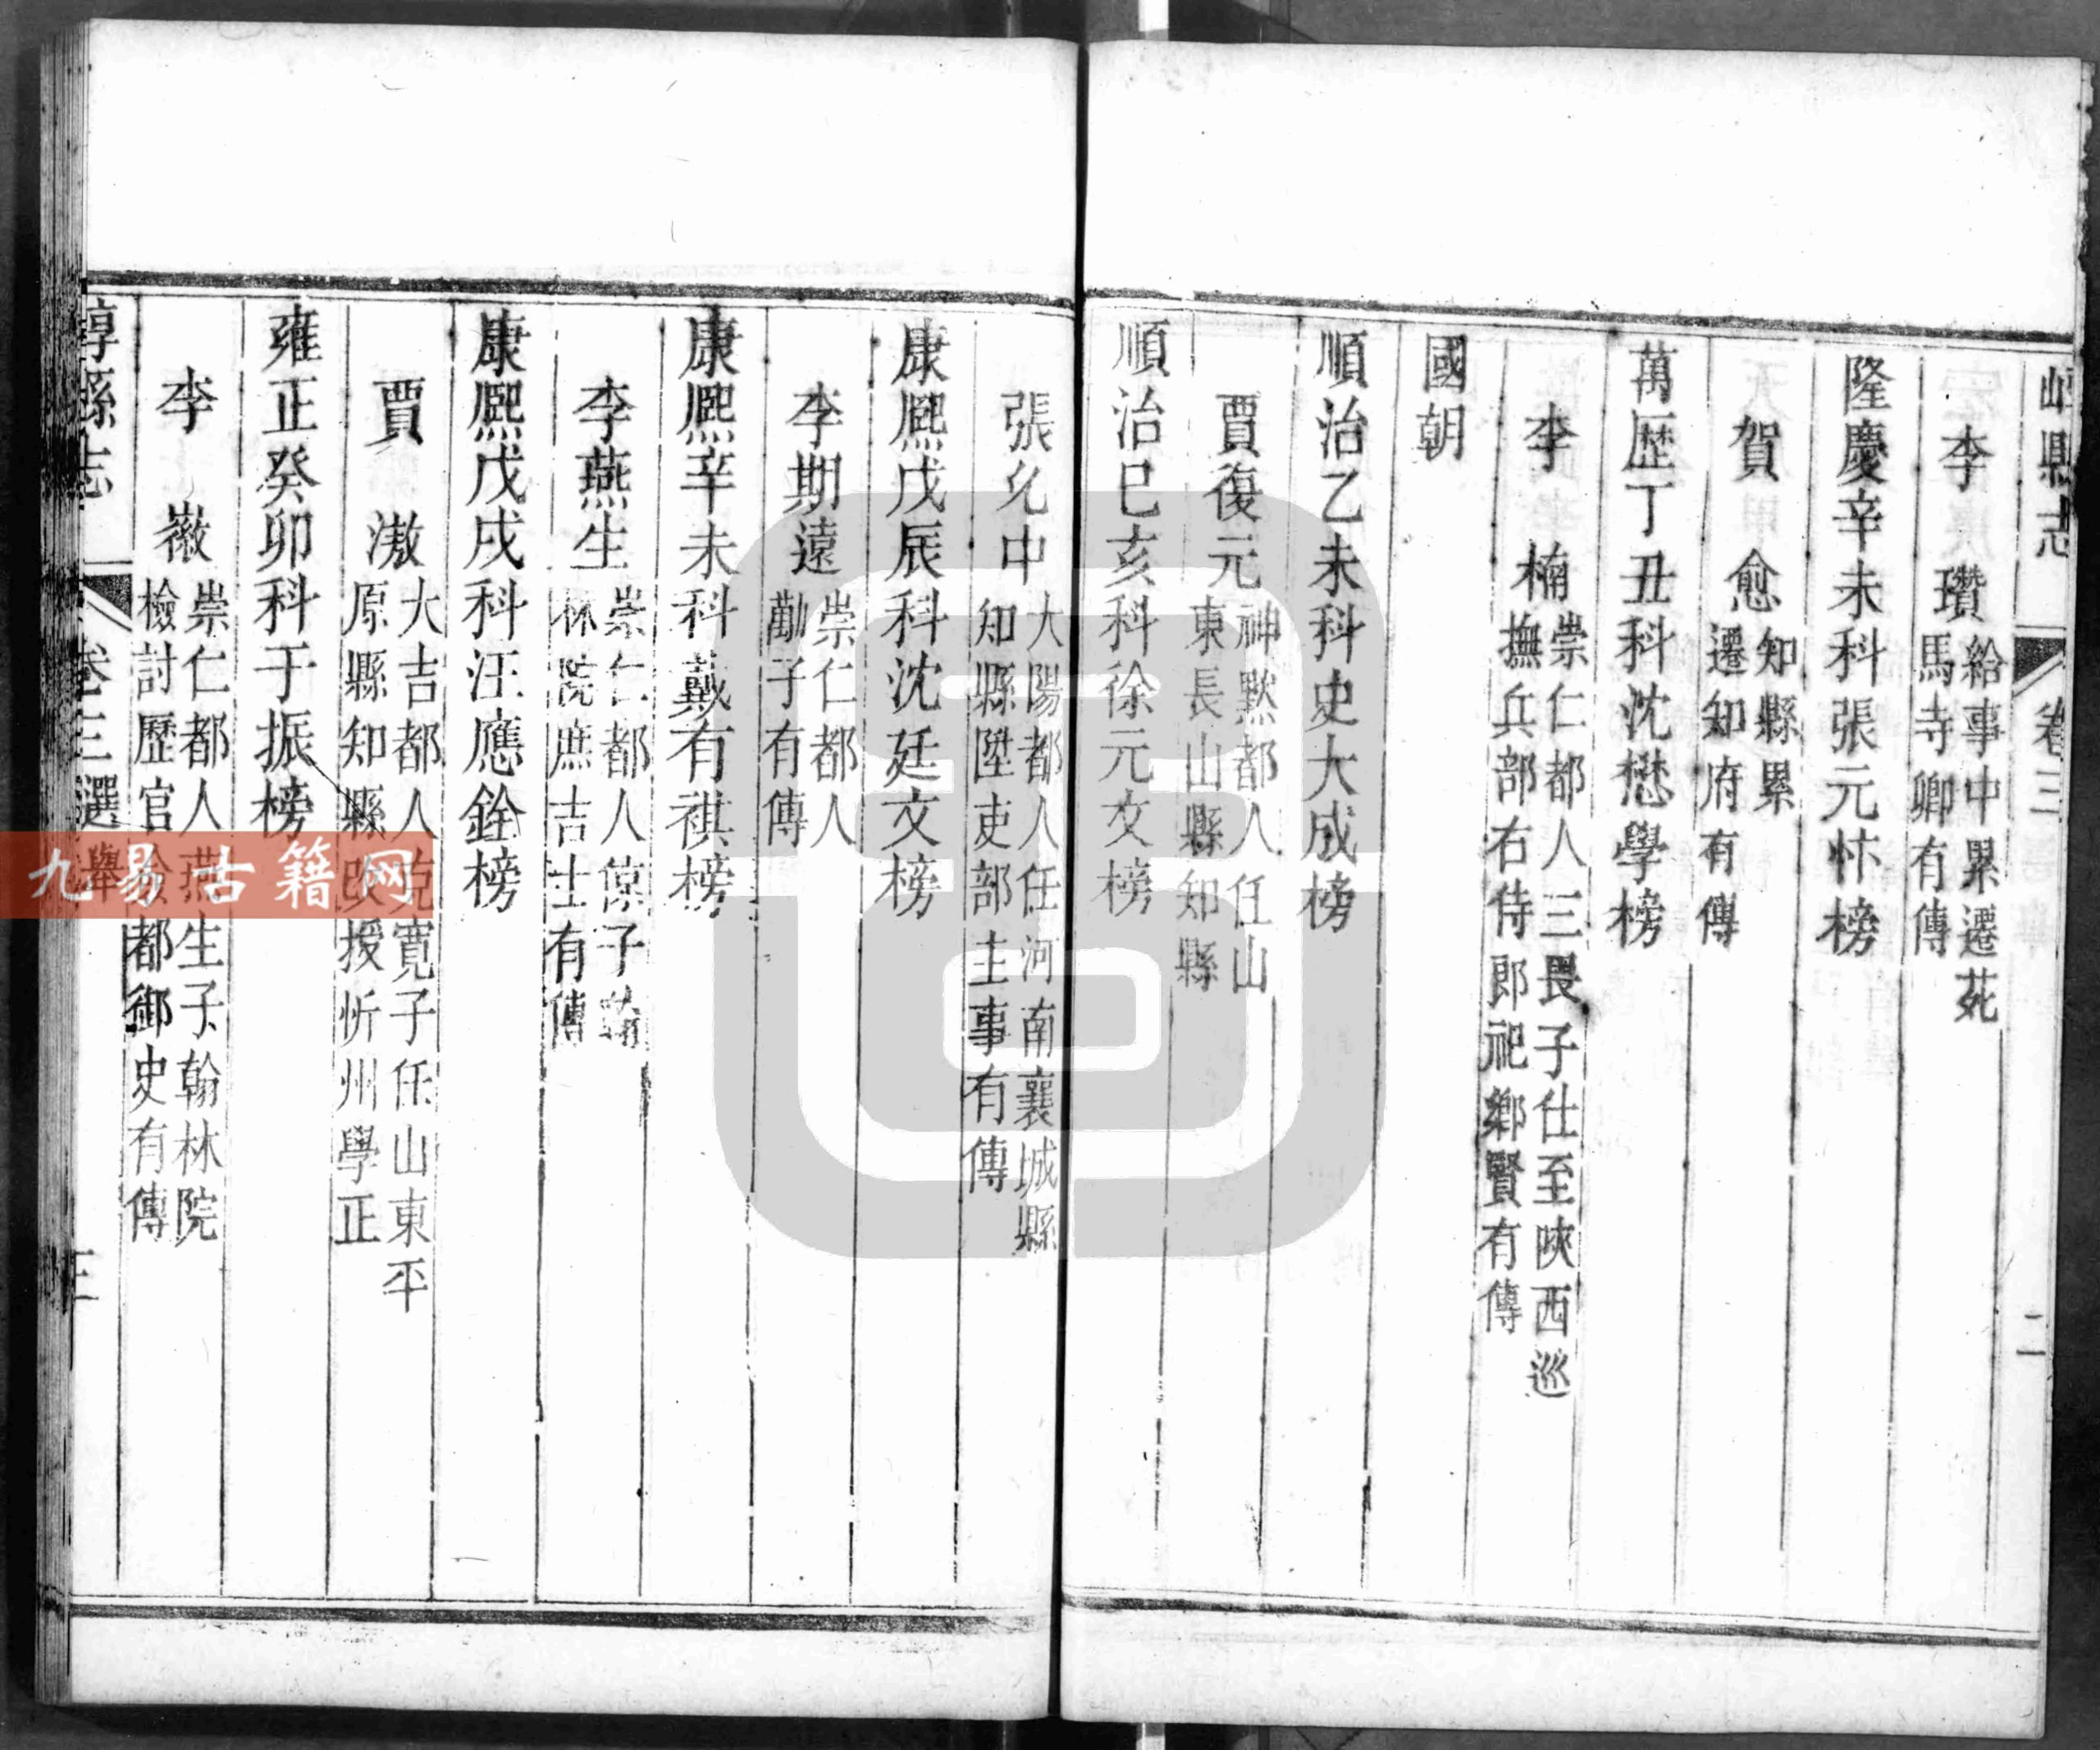 崞縣志 卷三 二
李瓚 給事中累遷苑馬寺卿有傳
隆慶辛未科張元忭榜
賀愈 知縣累遷知府有傳
萬歷丁丑科沈懋學榜
李楠 崇仁都人三畏子仕至陝西巡撫兵部右侍郎祀鄉賢有傳
國朝
順治乙未科史大成榜
賈復元 神黙都人任山東長山縣知縣
順治巳亥科徐元文榜
張允中 大陽都人任河南襄城縣知縣陞吏部主事有傳
康熙戊辰科沈廷文榜
李期遠 崇仁都人勸子有傳
康熙辛未科戴有祺榜
李燕生 崇仁都人倞子翰林院庶吉士有傳
康熙戊戌科汪應銓榜
賈滶 大吉都人克寬子任山東平原縣知縣改授忻州學正
雍正癸卯科于振榜
李徽 崇仁都人燕生子翰林院檢討歷官僉都御史有傳
崞縣志 卷三選舉 三
九易古籍网